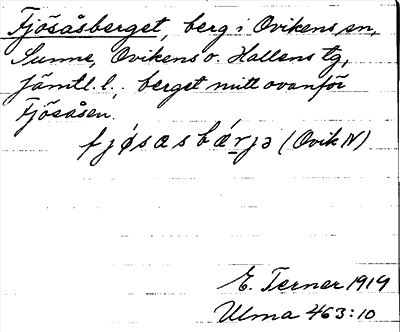 Fjösåsberget, berg i Ovikens sn,
Sunne, Ovikens o. Hallens tg,
Jämtl. l., berget mitt ovanför
Fjösåsen.
fjǿsasbárjə (Ovik N)
E. Terner 1919
Ulma 463:10